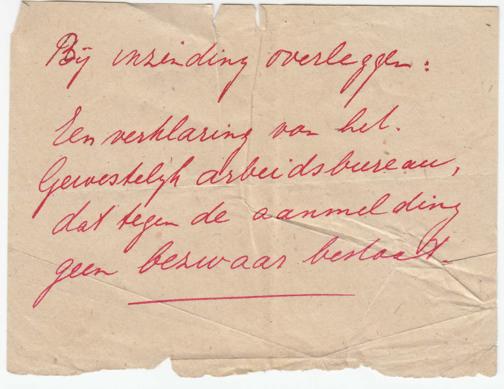 Bij inzending overleggen:
Een verklaring van het.
Gewestelijk arbeidsbureau,
dat tegen de aanmelding
geen bezwaar bestaat.